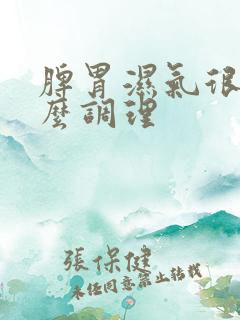 脾胃濕氣很
麼調理
張保健
未经同意禁止转载